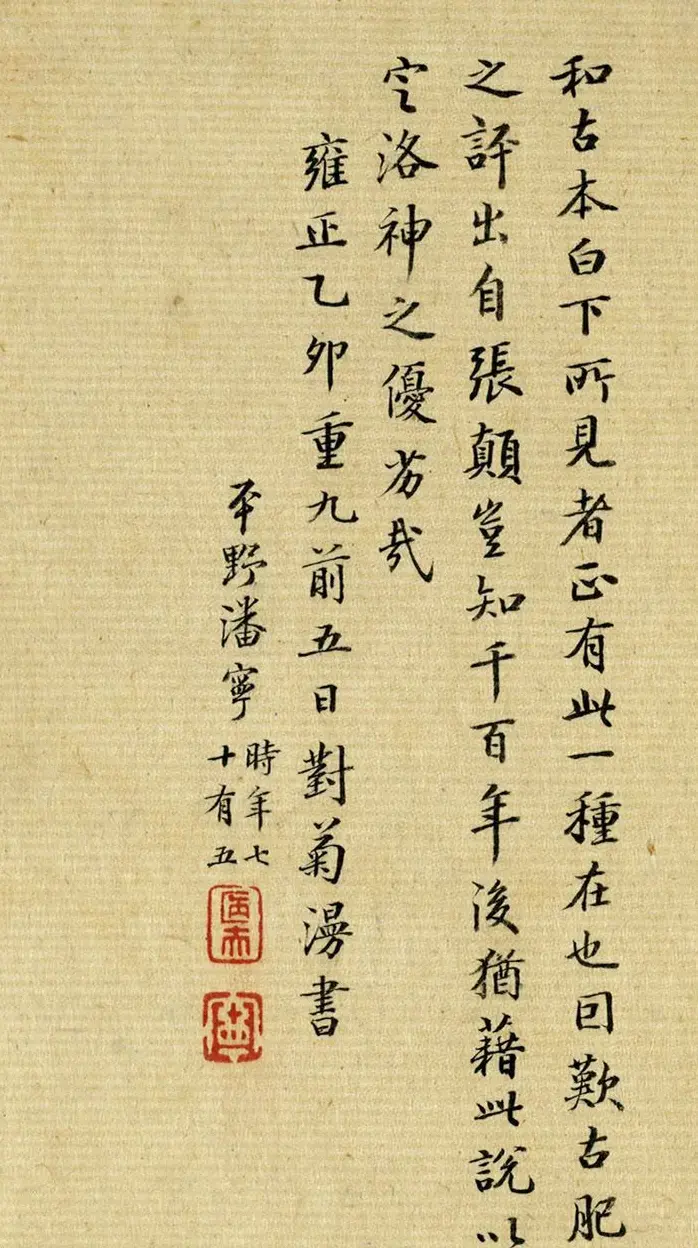 和古本白下所見者正有此一種在也回歎古肥
之評出自張顛豈知千百年後猶藉此說以
定洛神之優劣哉
雍正乙卯重九前五日對菊漫書
平野潘寧
時年七
十有五